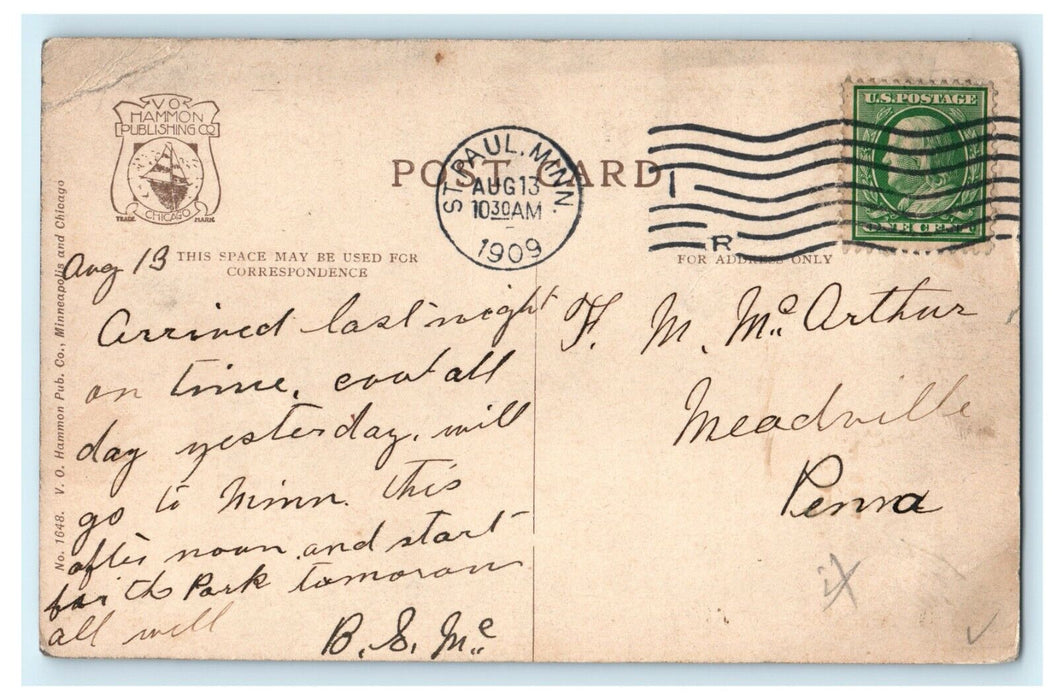 V O
HAMMON
PUBLISHING CO
CHICAGO
TRADE MARK
POST CARD
ST. PAUL. MINN.
AUG 13
10 30 AM
1909
1
R
U.S. POSTAGE
ONE CENT
THIS SPACE MAY BE USED FOR
CORRESPONDENCE
FOR ADDRESS ONLY
No. 1648. V. O. Hammon Pub. Co., Minneapolis and Chicago
Aug 13
Arrived last night
on time. cool all
day yesterday. will
go to Minn. this
after noon and start
for the Park tomorrow
all well
B. S. Mc
F. M. McArthur
Meadville
Penna